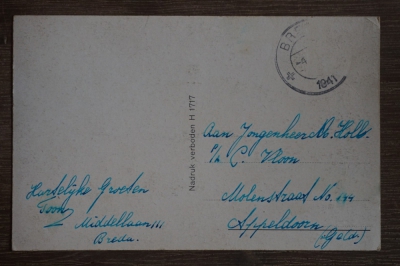 BRE
1941
Nadruk verboden H 1717
Aan Jongenheer M. Holl.
p/a C. Vloon
Molenstraat No. 144
Appeldoorn
(Geld.)
Hartelijke Groeten
Toon
Middellaan 111
Breda.